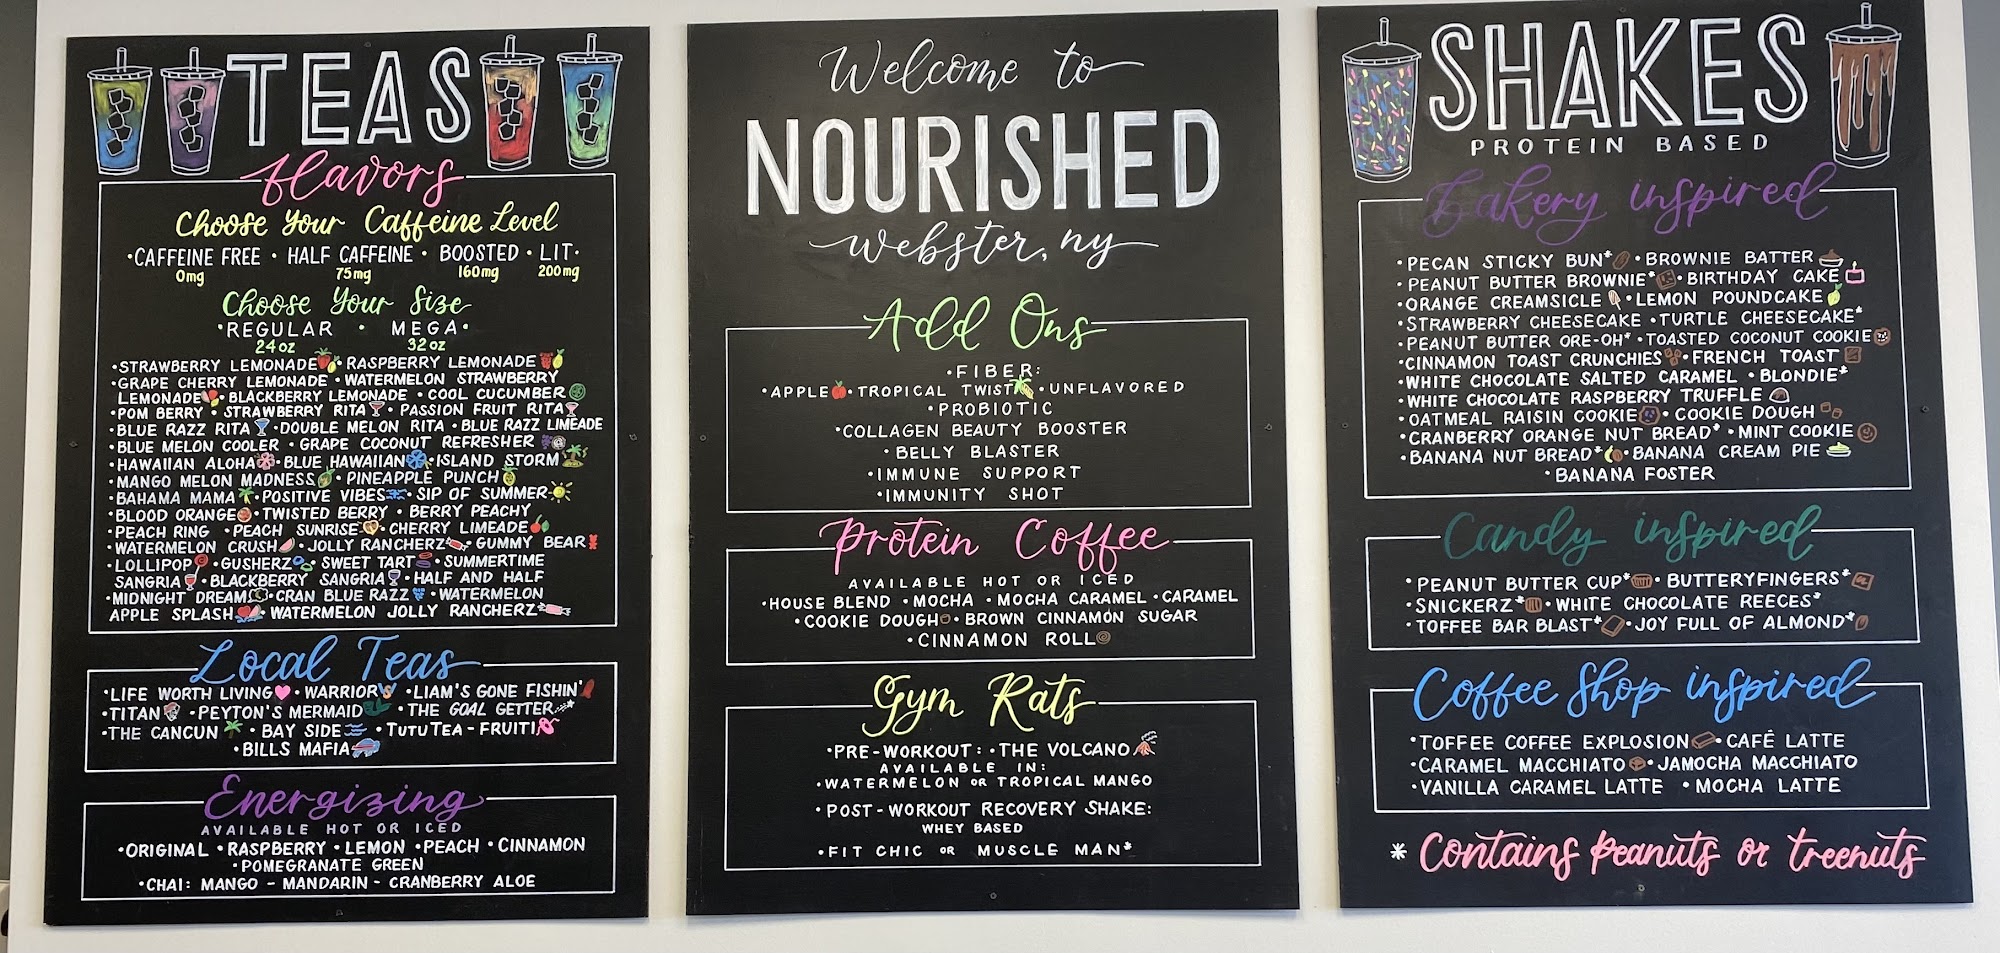 TEAS
flavors
Choose Your Caffeine Level
•CAFFEINE FREE • HALF CAFFEINE • BOOSTED • LIT•
0mg 75mg 160mg 200mg
Choose Your Size
•REGULAR • MEGA•
24oz 32oz
•STRAWBERRY LEMONADE •RASPBERRY LEMONADE
•GRAPE CHERRY LEMONADE •WATERMELON STRAWBERRY
LEMONADE •BLACKBERRY LEMONADE •COOL CUCUMBER
•POM BERRY • STRAWBERRY RITA • PASSION FRUIT RITA
•BLUE RAZZ RITA •DOUBLE MELON RITA •BLUE RAZZ LIMEADE
•BLUE MELON COOLER • GRAPE COCONUT REFRESHER
•HAWAIIAN ALOHA •BLUE HAWAIIAN •ISLAND STORM
•MANGO MELON MADNESS •PINEAPPLE PUNCH
•BAHAMA MAMA •POSITIVE VIBES • SIP OF SUMMER
•BLOOD ORANGE •TWISTED BERRY • BERRY PEACHY
•PEACH RING •PEACH SUNRISE •CHERRY LIMEADE
•WATERMELON CRUSH •JOLLY RANCHERZ •GUMMY BEAR
•LOLLIPOP •GUSHERZ • SWEET TART •SUMMERTIME
SANGRIA •BLACKBERRY SANGRIA •HALF AND HALF
•MIDNIGHT DREAM •CRAN BLUE RAZZ •WATERMELON
APPLE SPLASH •WATERMELON JOLLY RANCHERZ
Local Teas
•LIFE WORTH LIVING •WARRIOR •LIAM'S GONE FISHIN'
•TITAN •PEYTON'S MERMAID •THE GOAL GETTER
•THE CANCUN • BAY SIDE •TUTUTEA-FRUITI
•BILLS MAFIA
Energizing
AVAILABLE HOT OR ICED
•ORIGINAL •RASPBERRY •LEMON •PEACH •CINNAMON
•POMEGRANATE GREEN
•CHAI: MANGO - MANDARIN - CRANBERRY ALOE
Welcome to
NOURISHED
webster, ny
Add Ons
•FIBER:
•APPLE •TROPICAL TWIST •UNFLAVORED
•PROBIOTIC
•COLLAGEN BEAUTY BOOSTER
•BELLY BLASTER
•IMMUNE SUPPORT
•IMMUNITY SHOT
Protein Coffee
AVAILABLE HOT OR ICED
•HOUSE BLEND •MOCHA •MOCHA CARAMEL •CARAMEL
•COOKIE DOUGH •BROWN CINNAMON SUGAR
•CINNAMON ROLL
Gym Rats
•PRE-WORKOUT: •THE VOLCANO
AVAILABLE IN:
•WATERMELON OR TROPICAL MANGO
•POST-WORKOUT RECOVERY SHAKE:
WHEY BASED
•FIT CHIC OR MUSCLE MAN*
SHAKES
PROTEIN BASED
Bakery inspired
•PECAN STICKY BUN* •BROWNIE BATTER
•PEANUT BUTTER BROWNIE* •BIRTHDAY CAKE
•ORANGE CREAMSICLE •LEMON POUNDCAKE
•STRAWBERRY CHEESECAKE •TURTLE CHEESECAKE*
•PEANUT BUTTER ORE-OH* •TOASTED COCONUT COOKIE
•CINNAMON TOAST CRUNCHIES •FRENCH TOAST
•WHITE CHOCOLATE SALTED CARAMEL •BLONDIE*
•WHITE CHOCOLATE RASPBERRY TRUFFLE
•OATMEAL RAISIN COOKIE •COOKIE DOUGH
•CRANBERRY ORANGE NUT BREAD* •MINT COOKIE
•BANANA NUT BREAD* •BANANA CREAM PIE
•BANANA FOSTER
Candy inspired
•PEANUT BUTTER CUP* •BUTTERYFINGERS*
•SNICKERZ* •WHITE CHOCOLATE REECES*
•TOFFEE BAR BLAST* •JOY FULL OF ALMOND*
Coffee Shop inspired
•TOFFEE COFFEE EXPLOSION •CAFÉ LATTE
•CARAMEL MACCHIATO •JAMOCHA MACCHIATO
•VANILLA CARAMEL LATTE •MOCHA LATTE
* Contains peanuts or treenuts